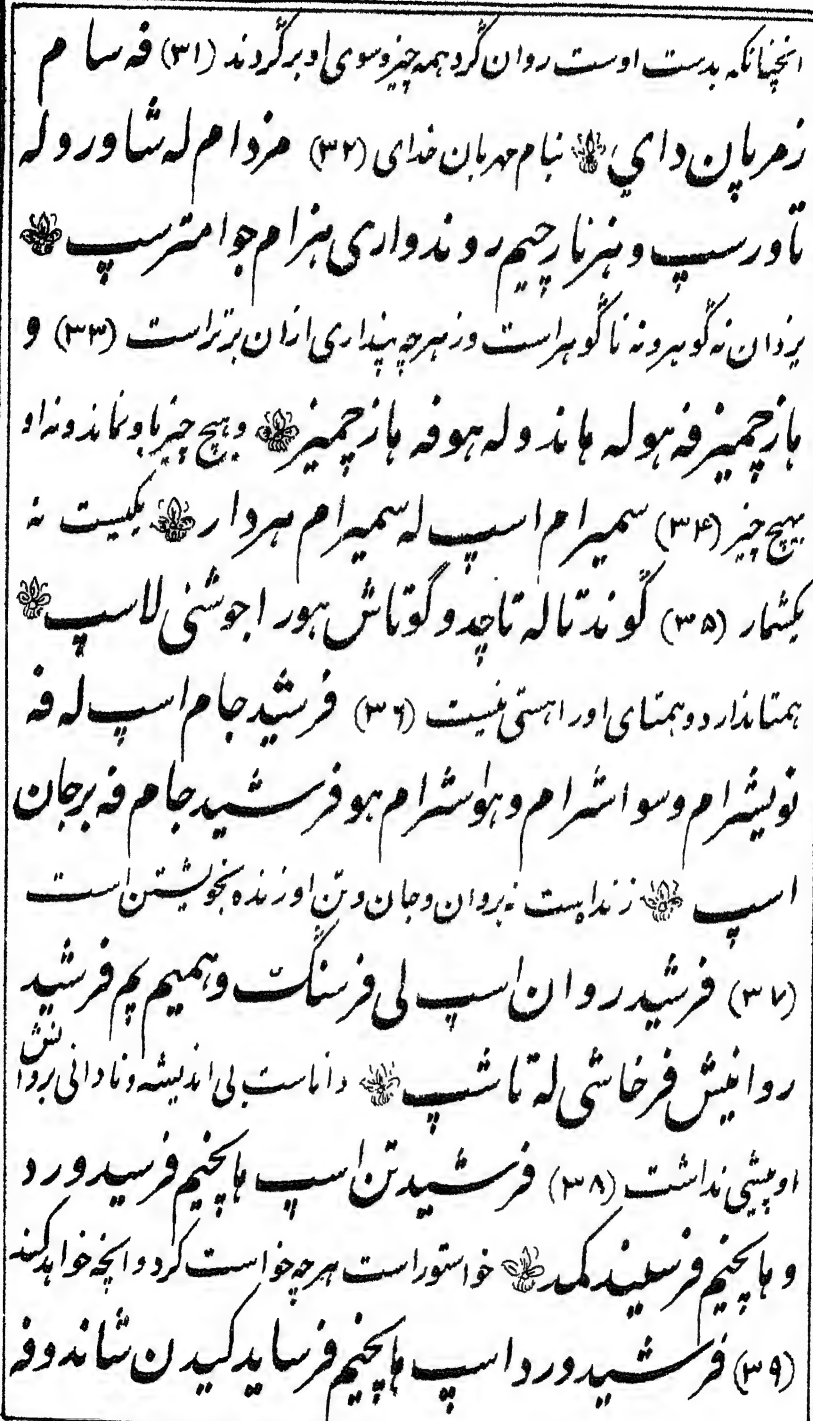 انچنانکه بدست اوست روان گرد همه چیز و سوی او برگردند (۳۱) فه سام
زمربان دای نبام مهربان خدای (۳۲) مزدام له شاور و له
تاورسپ و هنرنارچیم روندواری هزام جوامترسپ
یزدان نه گوهر و نه ناگوهر است وز هرچه پنداری ازان برتر است (۳۳) و
هازچمیز فه هو له هاند و له هو فه هازچمیز و هیچ چیز باو نماند و نه او
بهیچ چیز (۳۴) سمیرام اسپ له سمیرام هردار یکیست نه
یکشمار (۳۵) گوندتا له تاچد و گوتاش هورا جوشنی لاسپ
همتا ندارد و همتای اورا هستی نیست (۳۶) فرشیدجام اسپ له فه
نویشرام و سواشرام و هواشرام هو فرشیدجام فه برجان
اسپ زنداست نه بروان و جان و تن او زنده بخویشتن است
(۳۷) فرشیدروان اسپ لی فرسنگ و همیم پم فرشید
روانیش فرخاشی له تاشپ داناست بی اندیشه و نادانی بردانش
او پیشی نداشت (۳۸) فرشیدتن اسپ هاپخیم فرسیدورد
و هاپخیم فرسیند کمد خواستوراست هرچه خواست کرد و انچه خواهد کند
(۳۹) فرشیدورد اسپ هاپخیم فرساید کیدن شاند و فه